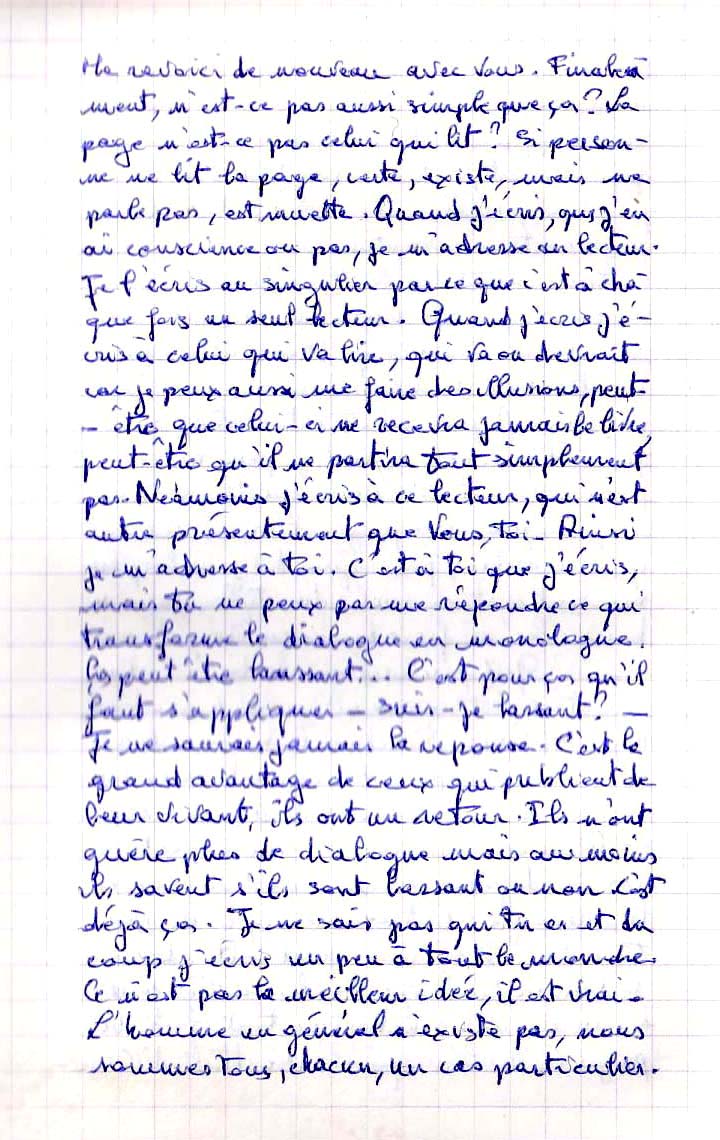 Me revoici de nouveau avec vous. Finale-
ment, n'est-ce pas aussi simple que ça? La
page n'est-ce pas celui qui lit? Si person-
ne ne lit la page, certe, existe, mais ne
parle pas, est muette. Quand j'écris, que j'en
ai conscience ou pas, je m'adresse au lecteur.
Je l'écris au singulier parce que c'est à cha-
que fois un seul lecteur. Quand j'écris j'é-
cris à celui qui va lire, qui va ou devrait
car je peux aussi me faire des illusions, peut-
-être que celui-ci ne recevra jamais le livre,
peut-être qu'il ne partira tout simplement
pas. Néamonis j'écris à ce lecteur, qui n'est
autre présentement que Vous, toi. Ainsi
je m'adresse à toi. C'est à toi que j'écris,
mais tu ne peux pas me répondre ce qui
transforme le dialogue en monologue.
Ça peut être lanssant... C'est pour ça qu'il
faut s'appliquer - suis-je lassant? -
Je ne saurais jamais la reponse. C'est le
grand avantage de ceux qui publient de
leur vivant, ils ont un retour. Ils n'ont
guère plus de dialogue mais au moins
ils savent s'ils sont lassant ou non c'est
déjà ça. Je ne sais pas qui tu es et du
coup j'écris un peu à tout le monde.
Ce n'est pas la meilleur idée, il est vrai.
L'homme en général n'existe pas, nous
sommes tous, chacun, un cas particulier.